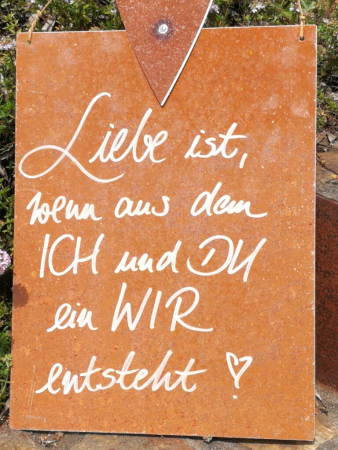 Liebe ist,
wenn aus dem
ICH und DU
ein WIR
entsteht!